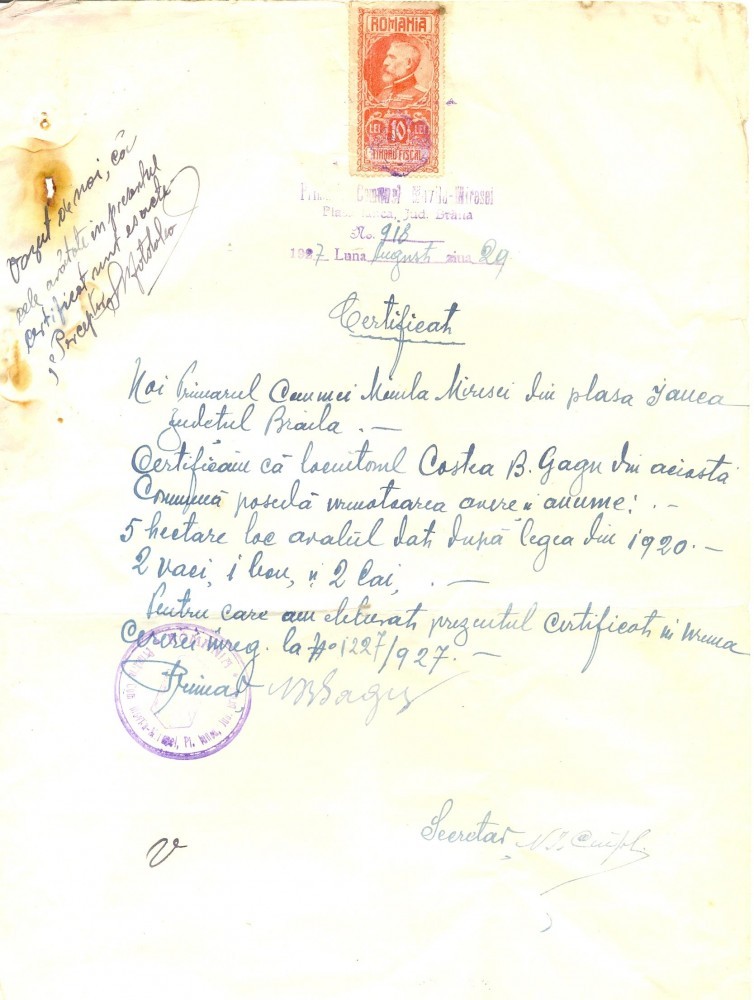 ROMANIA
LEI 10 LEI
TIMBRU FISCAL
Comunei Movila-Miresei
Plasa Ianca, Jud. Brăila
No. 918
1927 Luna August ziua 29
Vazut de noi, că
cele arătate in prezentul
certificat sunt exacte
Perceptor
Certificat
Noi Primarul Comunei Movila Miresei din plasa Ianca
Judetul Braila . —
Certificăm că locuitorul Costea B. Gagu din aciasta
Comună posedă urmatoarea avere si anume: . —
5 hectare loc arabil dat după legea din 1920. —
2 vaci, 1 bou, si 2 cai, . —
Pentru care am eliberat prezentul Certificat in urma
Cererei inreg. la No 1227/927. —
Primar
Secretar